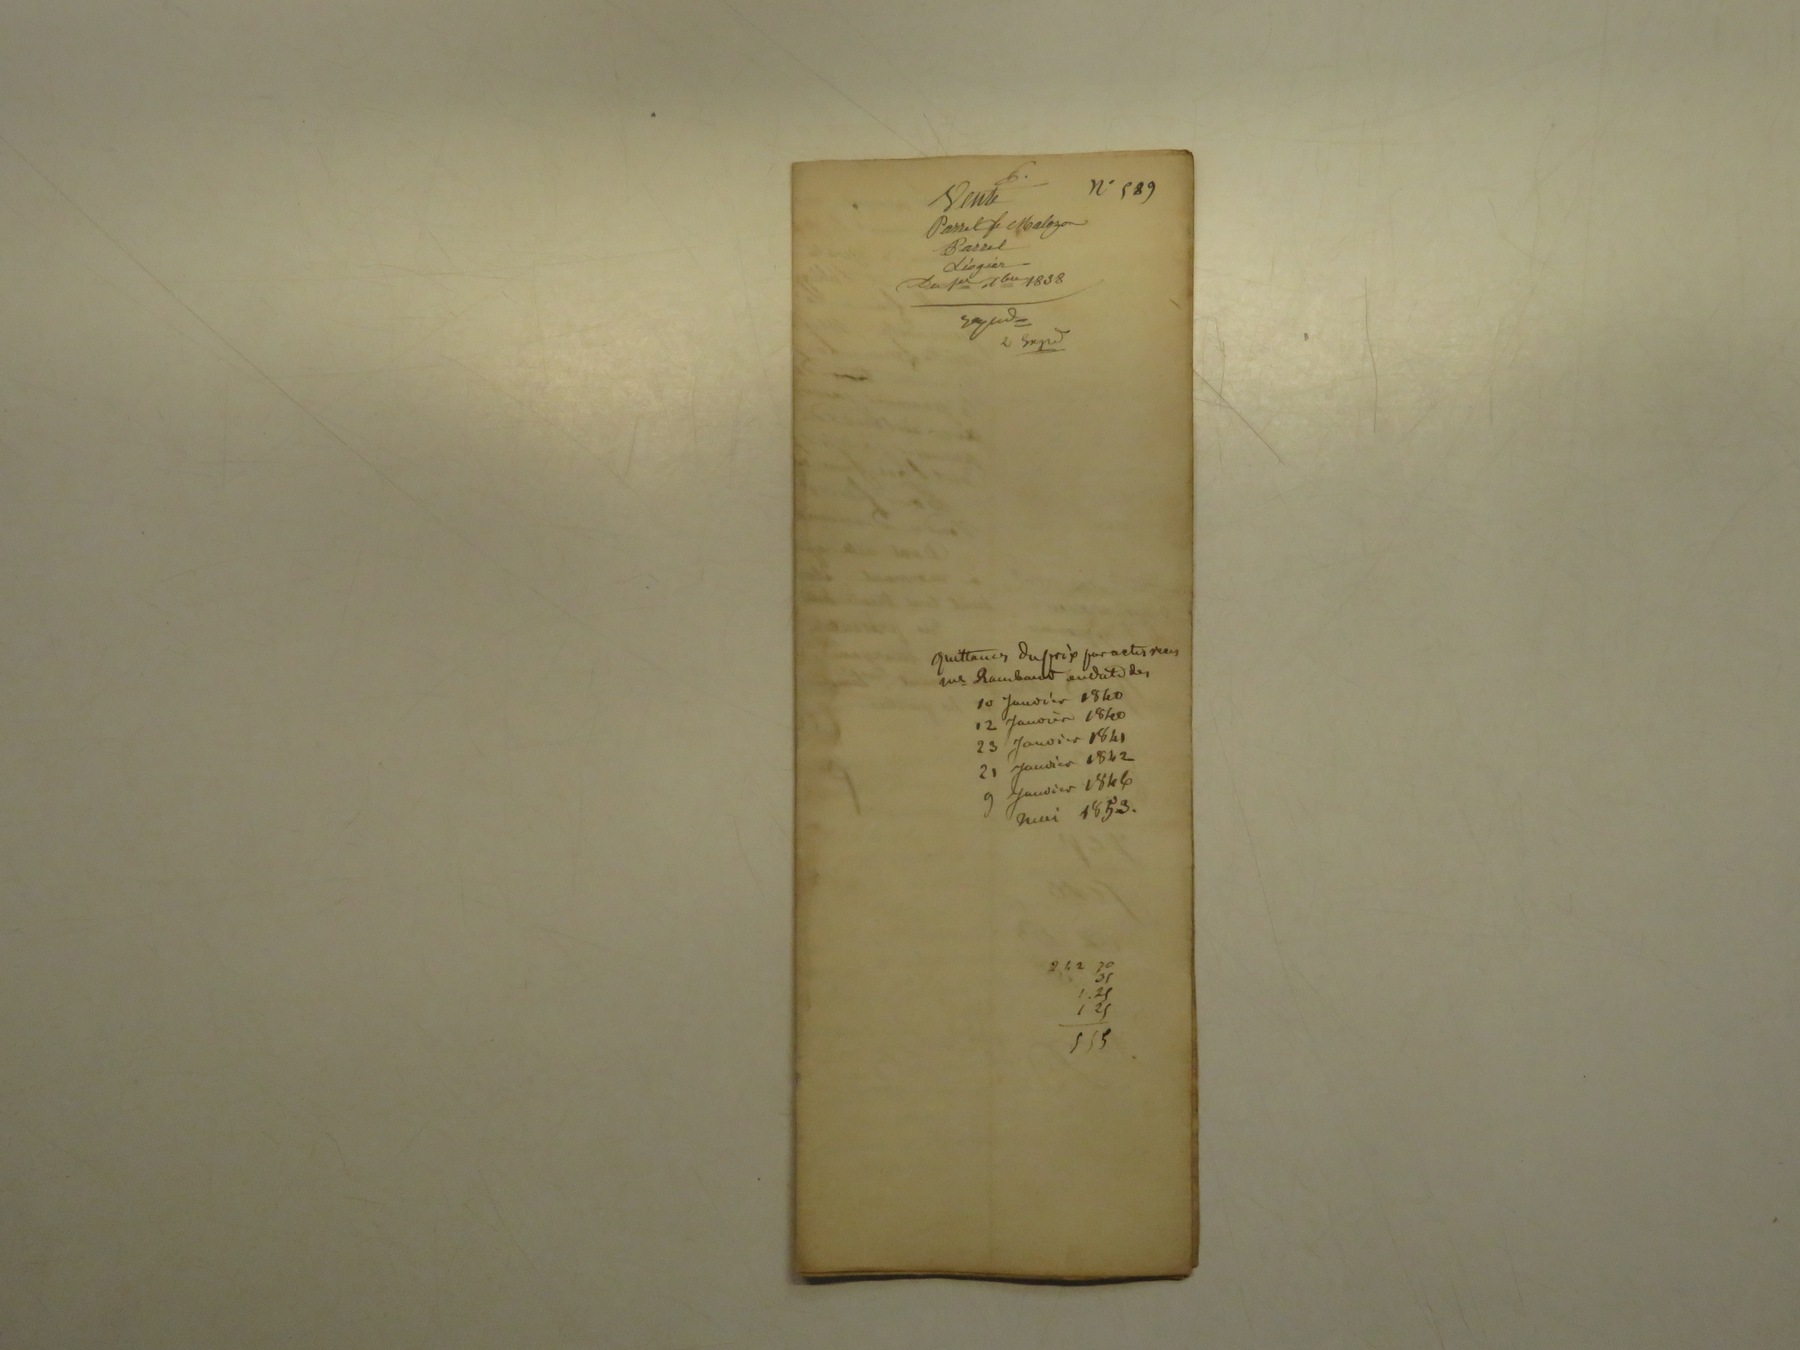 Vente
N° 589
Parrel fe Malozon
Parrel
Liogier
Du 1er xbre 1838
Expd
2 Expd
quittances du prix par actes reçus
me Rambaud en date des
10 Janvier 1840
12 Janvier 1840
23 Janvier 1841
21 Janvier 1842
9 Janvier 1846
mai 1853.
242 70
35
1.25
1 25
555